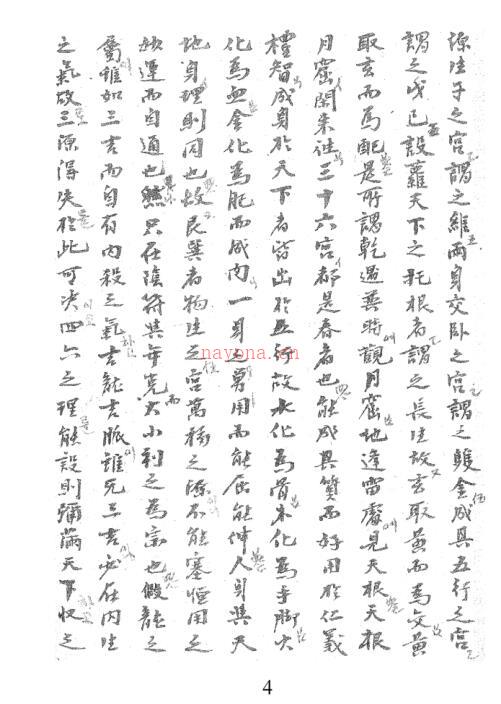 源生子之宮謂之維雨身交卧之宮謂之雙金成具五行之宮
謂之戊己設羅天下之耗根者謂之長生故玄取黃而為父黃
取玄而為配是所謂乾遇巽時觀月窟地逢雷處見天根天根
月窟閑來往三十六宮都是春者也能成具質而好用於仁義
禮智成身於天下者皆出於五行故水化為骨木化為手脚火
化為血金化為肥而成肉一身之勇用而能屈能伸人身與天
地身理則同也故艮巽者物生之宮萬物之源不能塞恒用之
妙運而自通也然只在陰符其等克大小利之為宗也假龍之
屬雖如三吉而自有內殺三氣吉龍吉脈雖无三吉必在內生
之氣故三源得失於此可决四六之理能設則彌滿天下收之
nayona.cn
4